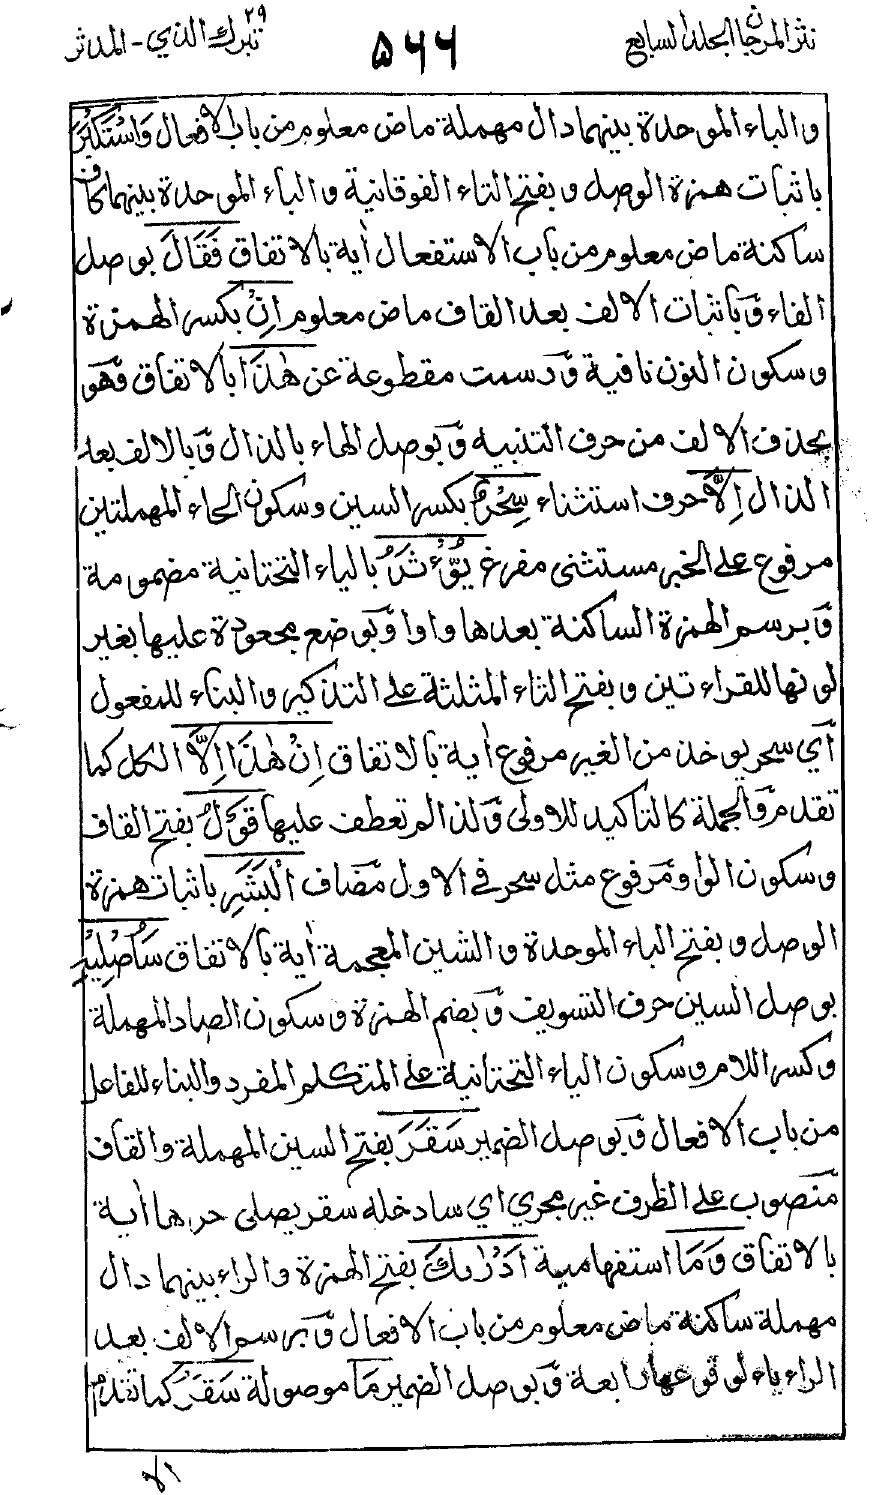 نثر المرجان الجلد السابع ۵۶۶ تبرك الذي ۲۹ - المدثر
والباء الموحدة بينهما دال مهملة ماض معلوم من باب الافعال وَاسْتَكْبَرَ
باثبات همزة الوصل وبفتح التاء الفوقانية والباء الموحدة بينهما كاف
ساكنة ماض معلوم من باب الاستفعال اٰية بالاتفاق فَقَالَ بوصل
الفاء وباثبات الالف بعد القاف ماض معلوم اِنْ بكسر الهمزة
وسكون النون نافية ورسمت مقطوعة عن هٰذَا بالاتفاق وهو
بحذف الالف من حرف التنبيه وبوصل الهاء بالذال وبالالف بعد
الذال اِلَّا حرف استثناء سِحْرٌ بكسر السين وسكون الحاء المهملتين
مرفوع على الخبر مستثنى مفرغ يُّؤْثَرُ بالياء التحتانية مضمومة
وبرسم الهمزة الساكنة بعدها واوا وبوضع مجعودة عليها بغير
لونها للقراءتين وبفتح الثاء المثلثة على التذكير والبناء للمفعول
أي سحر يوخذ من الغير مرفوع اٰية بالاتفاق اِنْ هٰذَا اِلَّا الكل كما
تقدم والجملة كالتاكيد للاولى ولذا لم تعطف عليها قَوْلُ بفتح القاف
وسكون الواو مرفوع مثل سحر في الاول مضاف الْبَشَرِ باثبات همزة
الوصل وبفتح الباء الموحدة والشين المعجمة اٰية بالاتفاق سَاُصْلِيْهِ
بوصل السين حرف التسويف وبضم الهمزة وسكون الصاد المهملة
وكسر اللام وسكون الياء التحتانية على المتكلم المفرد والبناء للفاعل
من باب الافعال وبوصل الضمير سَقَرَ بفتح السين المهملة والقاف
منصوب على الظرف غير مجري اي سادخله سقر يصلى حرها اٰية
بالاتفاق وَمَا استفهامية اَدْرٰىكَ بفتح الهمزة والراء بينهما دال
مهملة ساكنة ماض معلوم من باب الافعال وبرسم الالف بعد
الراء ياء لوقوعها رابعة وبوصل الضمير مَا موصولة سَقَرُ كما تقدم
الا